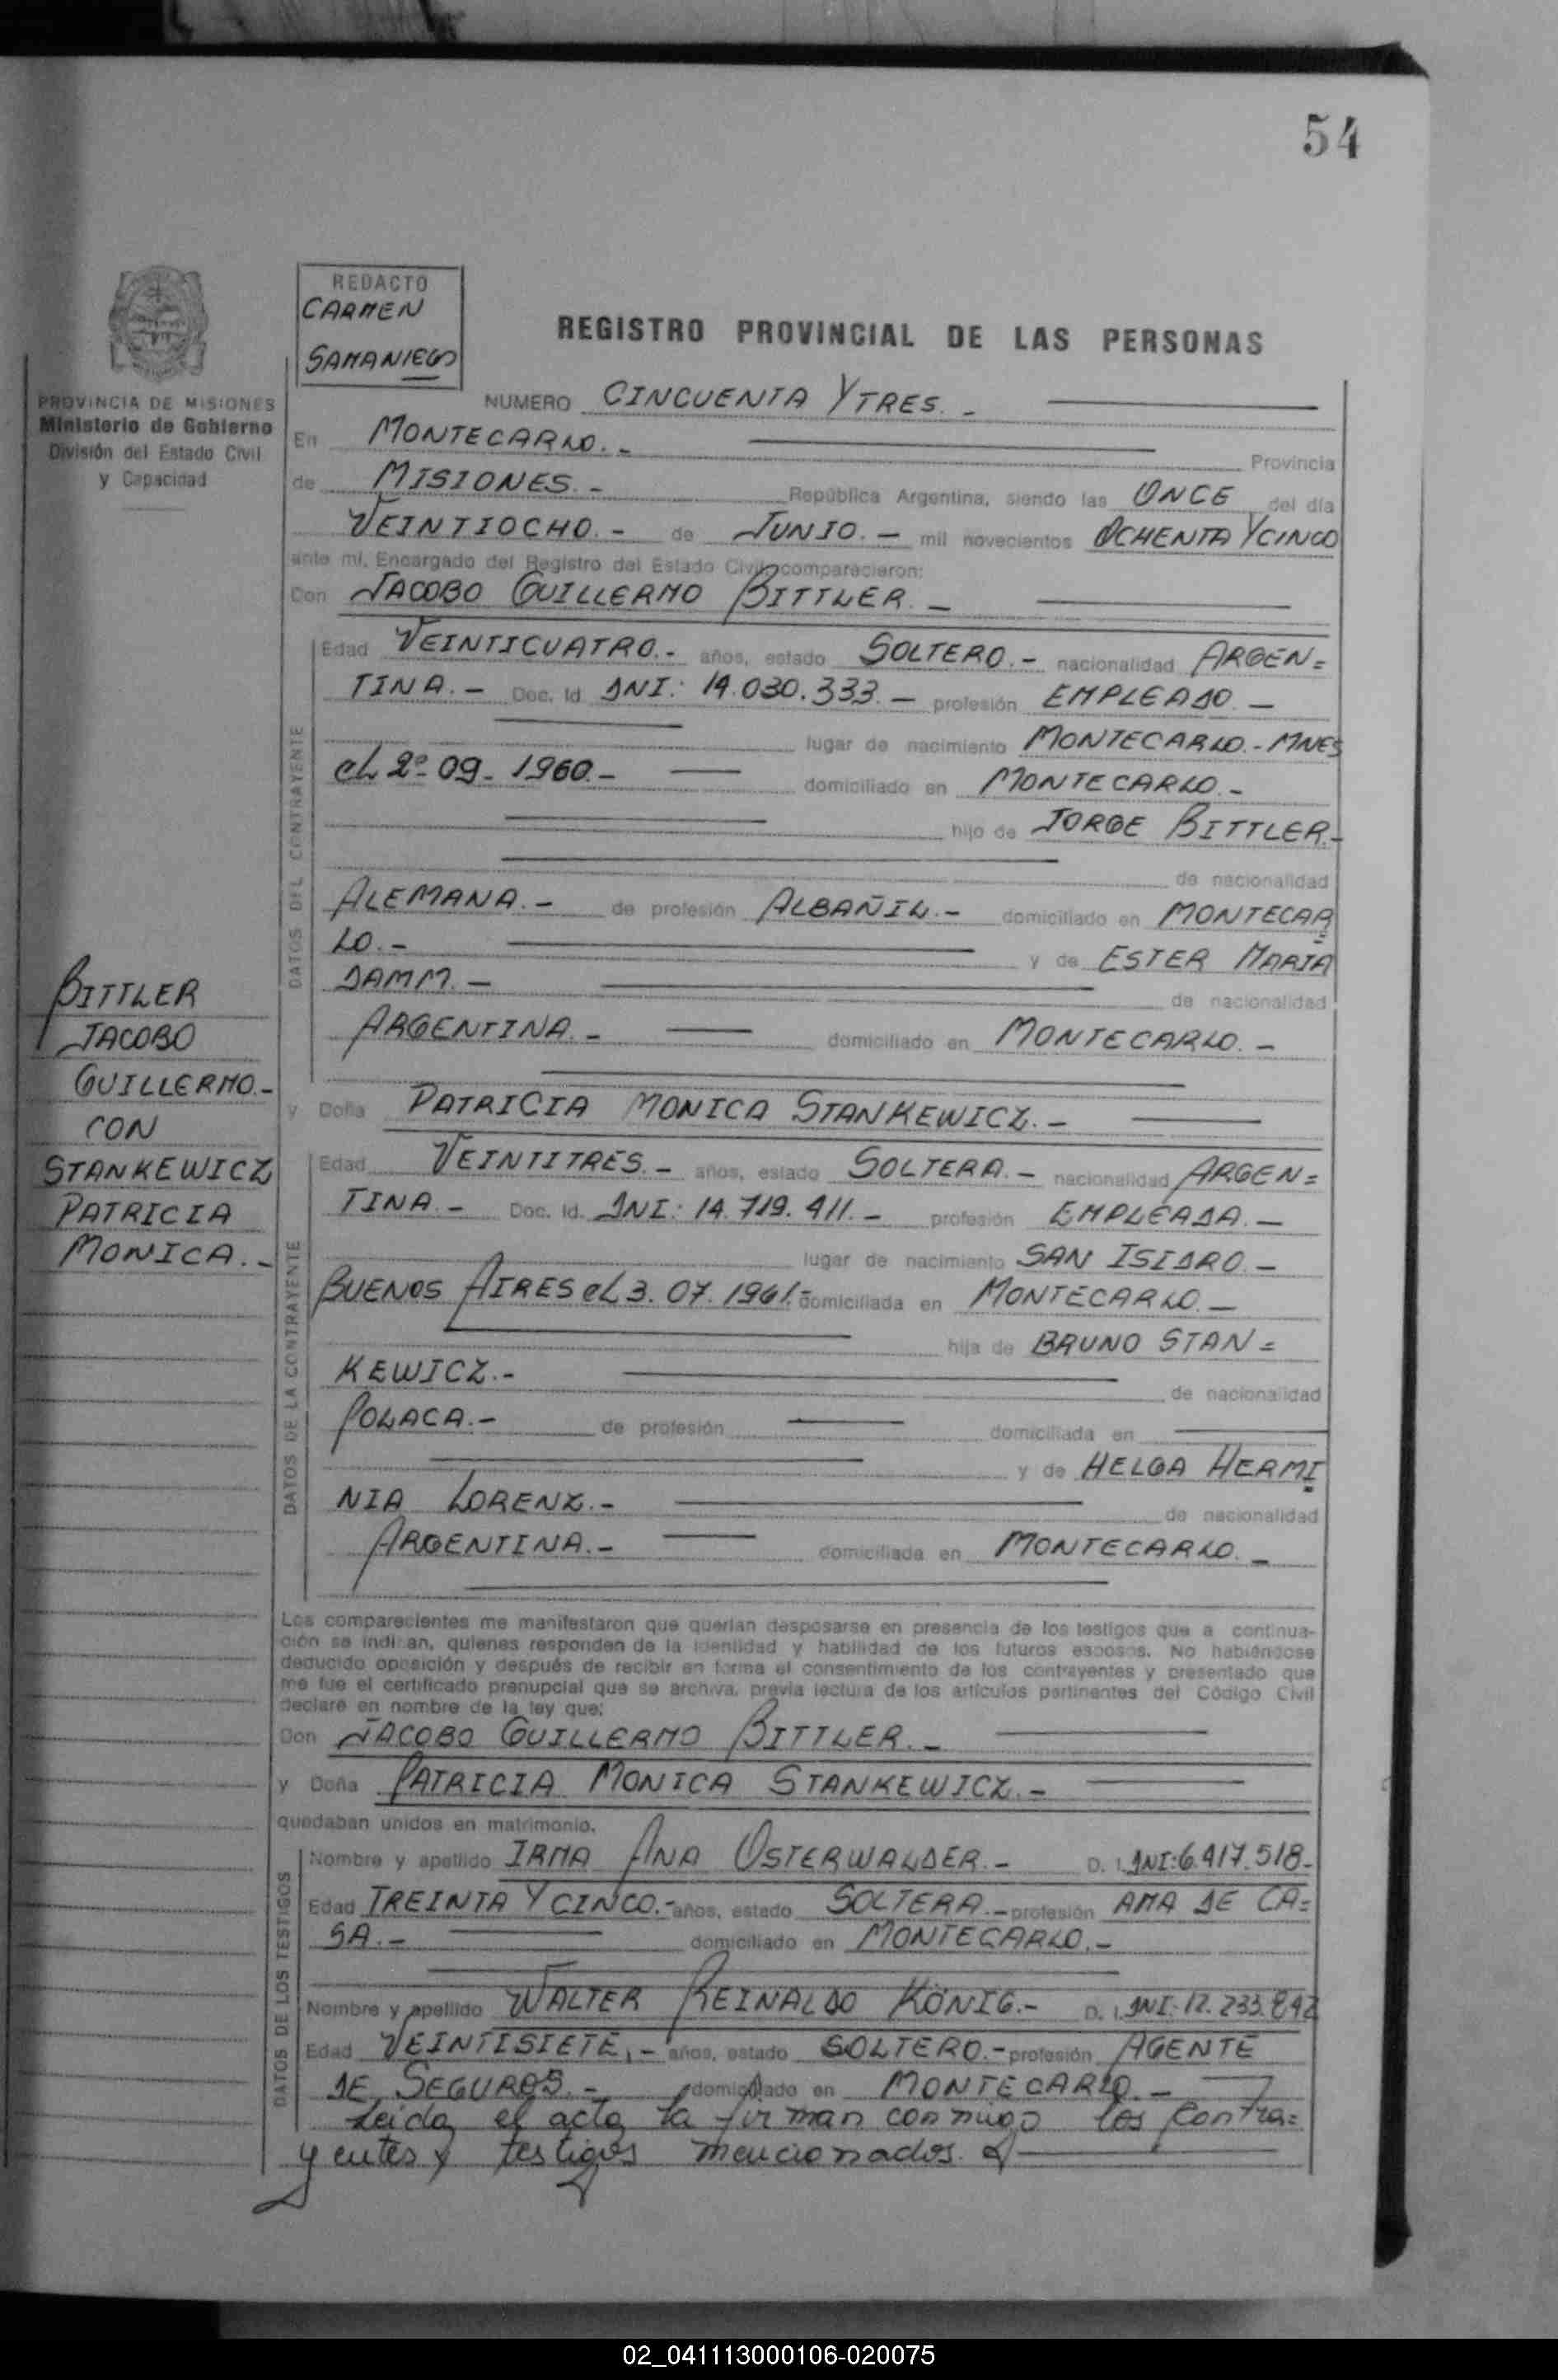 54
REDACTO
CARMEN
SAMANIEGO
REGISTRO PROVINCIAL DE LAS PERSONAS
PROVINCIA DE MISIONES
Ministerio de Gobierno
División del Estado Civil
y Capacidad
NUMERO CINCUENTA Y TRES.-
En MONTECARLO.- Provincia
de MISIONES.- República Argentina, siendo las ONCE del día
VEINTIOCHO.- de JUNIO.- mil novecientos OCHENTA Y CINCO
ante mi, Encargado del Registro del Estado Civil comparecieron:
Con JACOBO GUILLERMO BITTLER.-
DATOS DEL CONTRAYENTE
Edad VEINTICUATRO.- años, estado SOLTERO.- nacionalidad ARGEN=
TINA.- Doc. Id. DNI.: 14.030.333.- profesión EMPLEADO.-
lugar de nacimiento MONTECARLO.-MNES
el 2-09-1960.- domiciliado en MONTECARLO.-
hijo de JORGE BITTLER.-
de nacionalidad
ALEMANA.- de profesión ALBAÑIL.- domiciliado en MONTECAR
LO.- y de ESTER MARIA
DAMM.- de nacionalidad
ARGENTINA.- domiciliado en MONTECARLO.-
BITTLER
JACOBO
GUILLERMO.-
CON
STANKEWICZ
PATRICIA
MONICA.-
y Doña PATRICIA MONICA STANKEWICZ.-
DATOS DE LA CONTRAYENTE
Edad VEINTITRES.- años, estado SOLTERA.- nacionalidad ARGEN=
TINA.- Doc. Id. DNI.: 14.719.411.- profesión EMPLEADA.-
lugar de nacimiento SAN ISIDRO.-
BUENOS AIRES el 3.07.1961.- domiciliada en MONTECARLO.-
hija de BRUNO STAN=
KEWICZ.- de nacionalidad
POLACA.- de profesión domiciliada en
y de HELGA HERMI
NIA LORENZ.- de nacionalidad
ARGENTINA.- domiciliada en MONTECARLO.-
Los comparecientes me manifestaron que querían desposarse en presencia de los testigos que a continua-
ción se indican, quienes responden de la identidad y habilidad de los futuros esposos. No habiéndose
deducido oposición y después de recibir en forma el consentimiento de los contrayentes y presentado que
me fue el certificado prenupcial que se archiva, previa lectura de los artículos pertinentes del Código Civil
declaré en nombre de la ley que:
Don JACOBO GUILLERMO BITTLER.-
y Doña PATRICIA MONICA STANKEWICZ.-
quedaban unidos en matrimonio.
DATOS DE LOS TESTIGOS
Nombre y apellido IRMA ANA OSTERWALDER.- D. I. DNI:6.417.518-
Edad TREINTA Y CINCO.- años, estado SOLTERA.- profesión AMA DE CA=
SA.- domiciliado en MONTECARLO.-
Nombre y apellido WALTER REINALDO KÖNIG.- D. I. DNI:12.233.842
Edad VEINTISIETE.- años, estado SOLTERO.- profesión AGENTE
DE SEGUROS.- domiciliado en MONTECARLO.-
Leida el acta la firman conmigo los contra=
yentes y testigos mencionados.
02_041113000106-020075